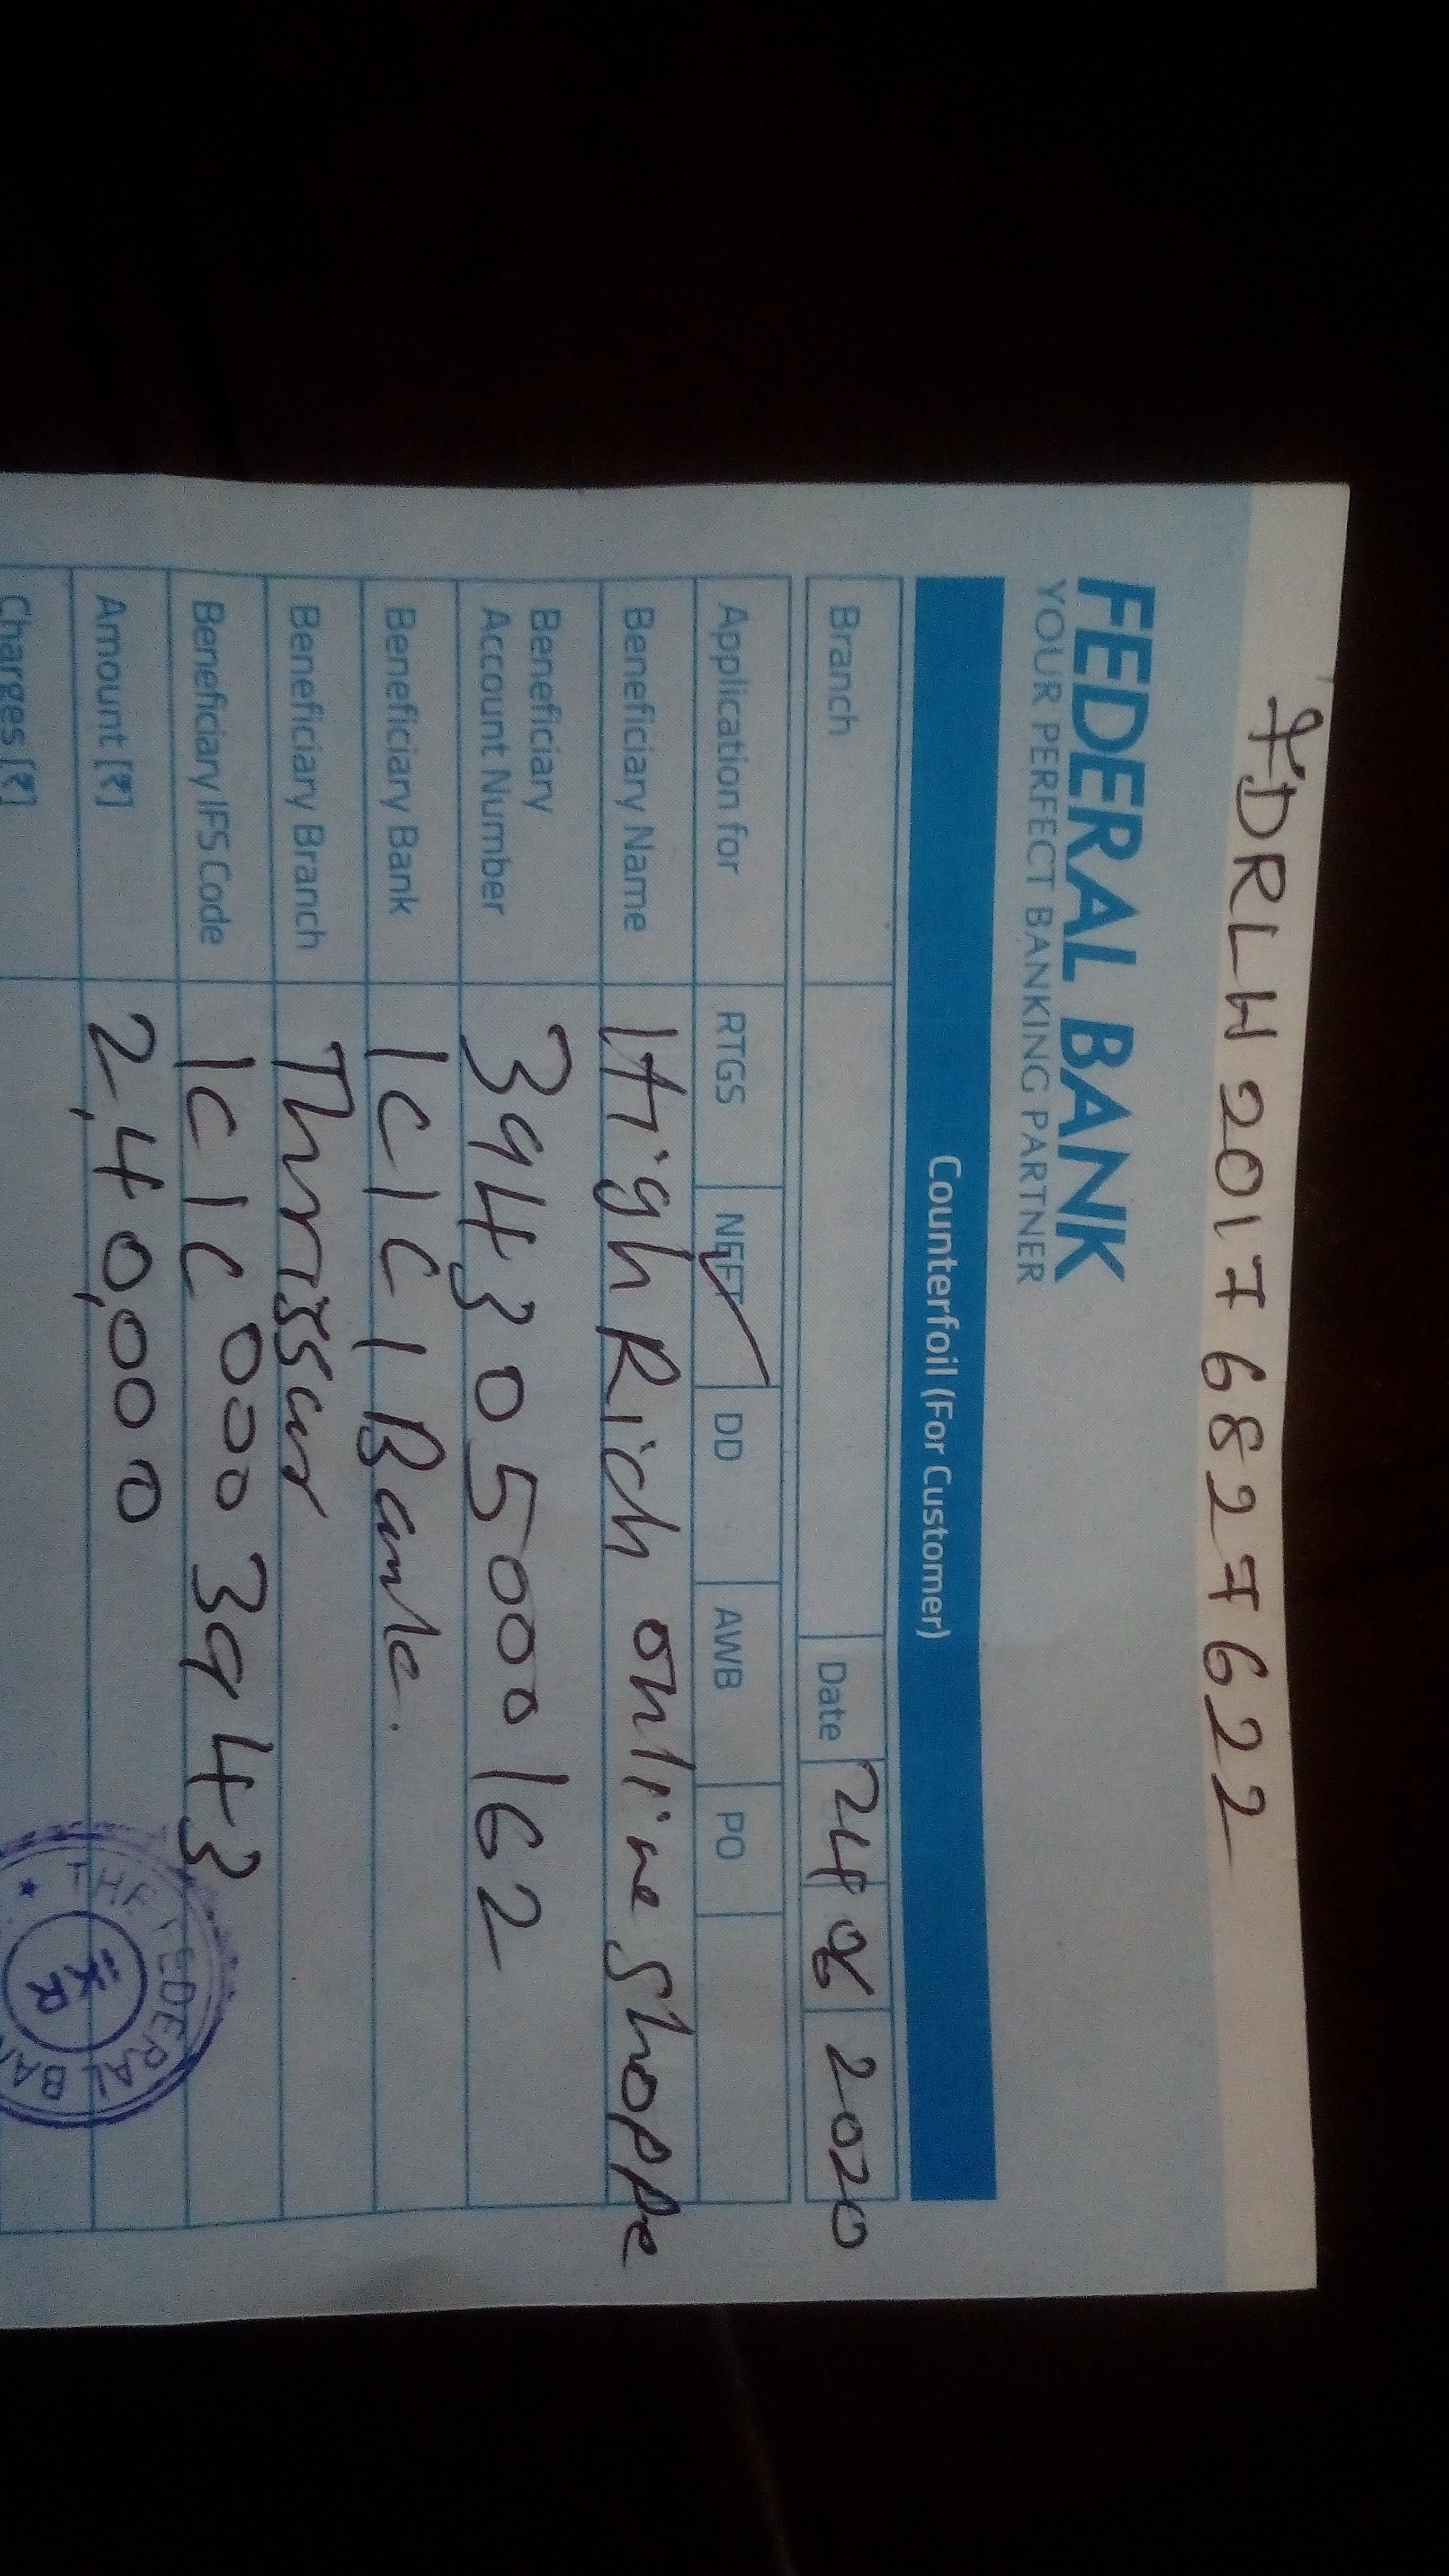 FDRLH20176827622
FEDERAL BANK
YOUR PERFECT BANKING PARTNER
Counterfoil (For Customer)
Branch Date 24 06 2020
Application for RTGS NEFT DD AWB PO
Beneficiary Name High Rich online shoppe
Beneficiary
Account Number 394305000162
Beneficiary Bank ICICI Bank.
Beneficiary Branch Thrissur
Beneficiary IFS Code ICIC0003943
Amount [₹] 2,40,000
Charges [₹]
THE FEDERAL BAN